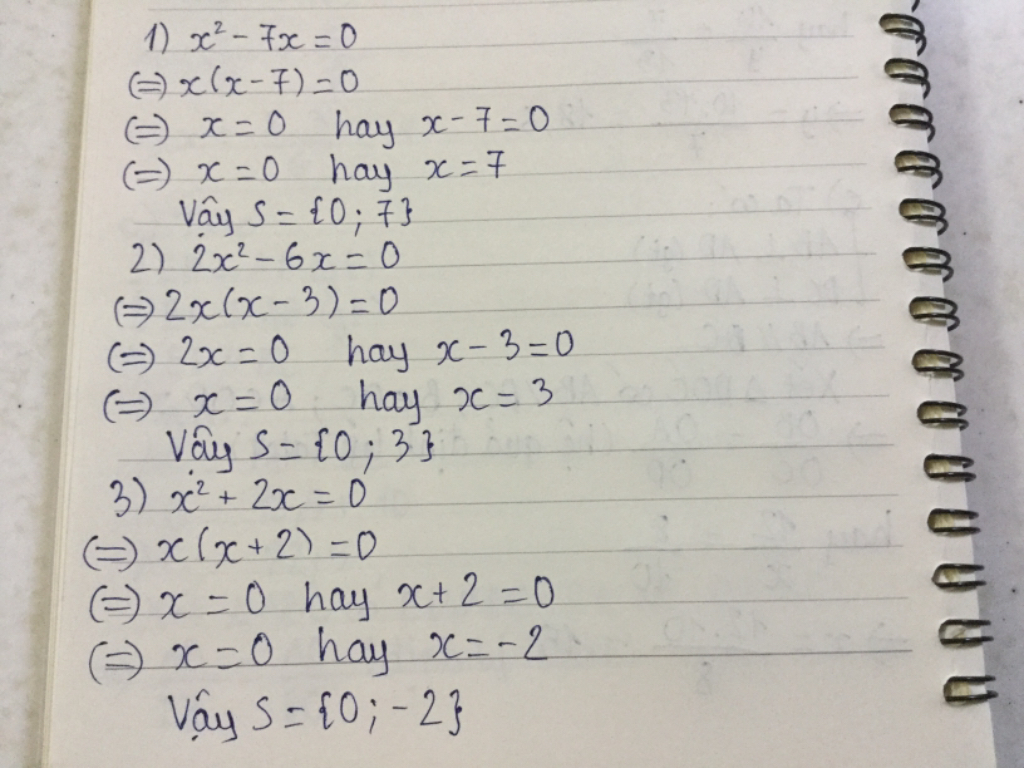 1) x² - 7x = 0
(=) x(x - 7) = 0
(=) x = 0 hay x - 7 = 0
(=) x = 0 hay x = 7
Vậy S = {0 ; 7}
2) 2x² - 6x = 0
(=) 2x(x - 3) = 0
(=) 2x = 0 hay x - 3 = 0
(=) x = 0 hay x = 3
Vậy S = {0 ; 3}
3) x² + 2x = 0
(=) x(x + 2) = 0
(=) x = 0 hay x + 2 = 0
(=) x = 0 hay x = -2
Vậy S = {0 ; -2}